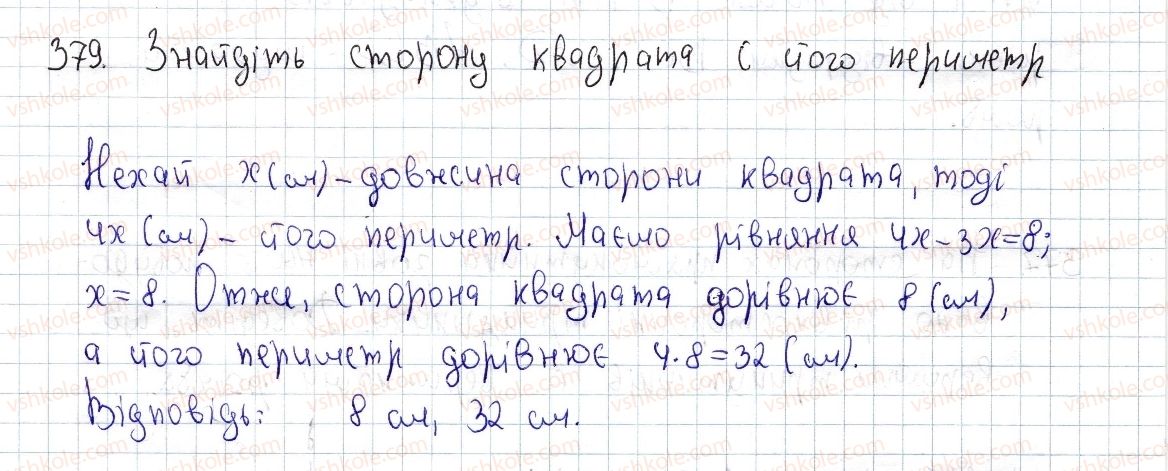 379. Знайдіть сторону квадрата і його периметр
Нехай x (см) – довжина сторони квадрата, тоді
4x (см) – його периметр. Маємо рівняння 4x – 3x = 8;
x = 8. Отже, сторона квадрата дорівнює 8 (см),
а його периметр дорівнює 4·8 = 32 (см).
Відповідь: 8 см, 32 см.